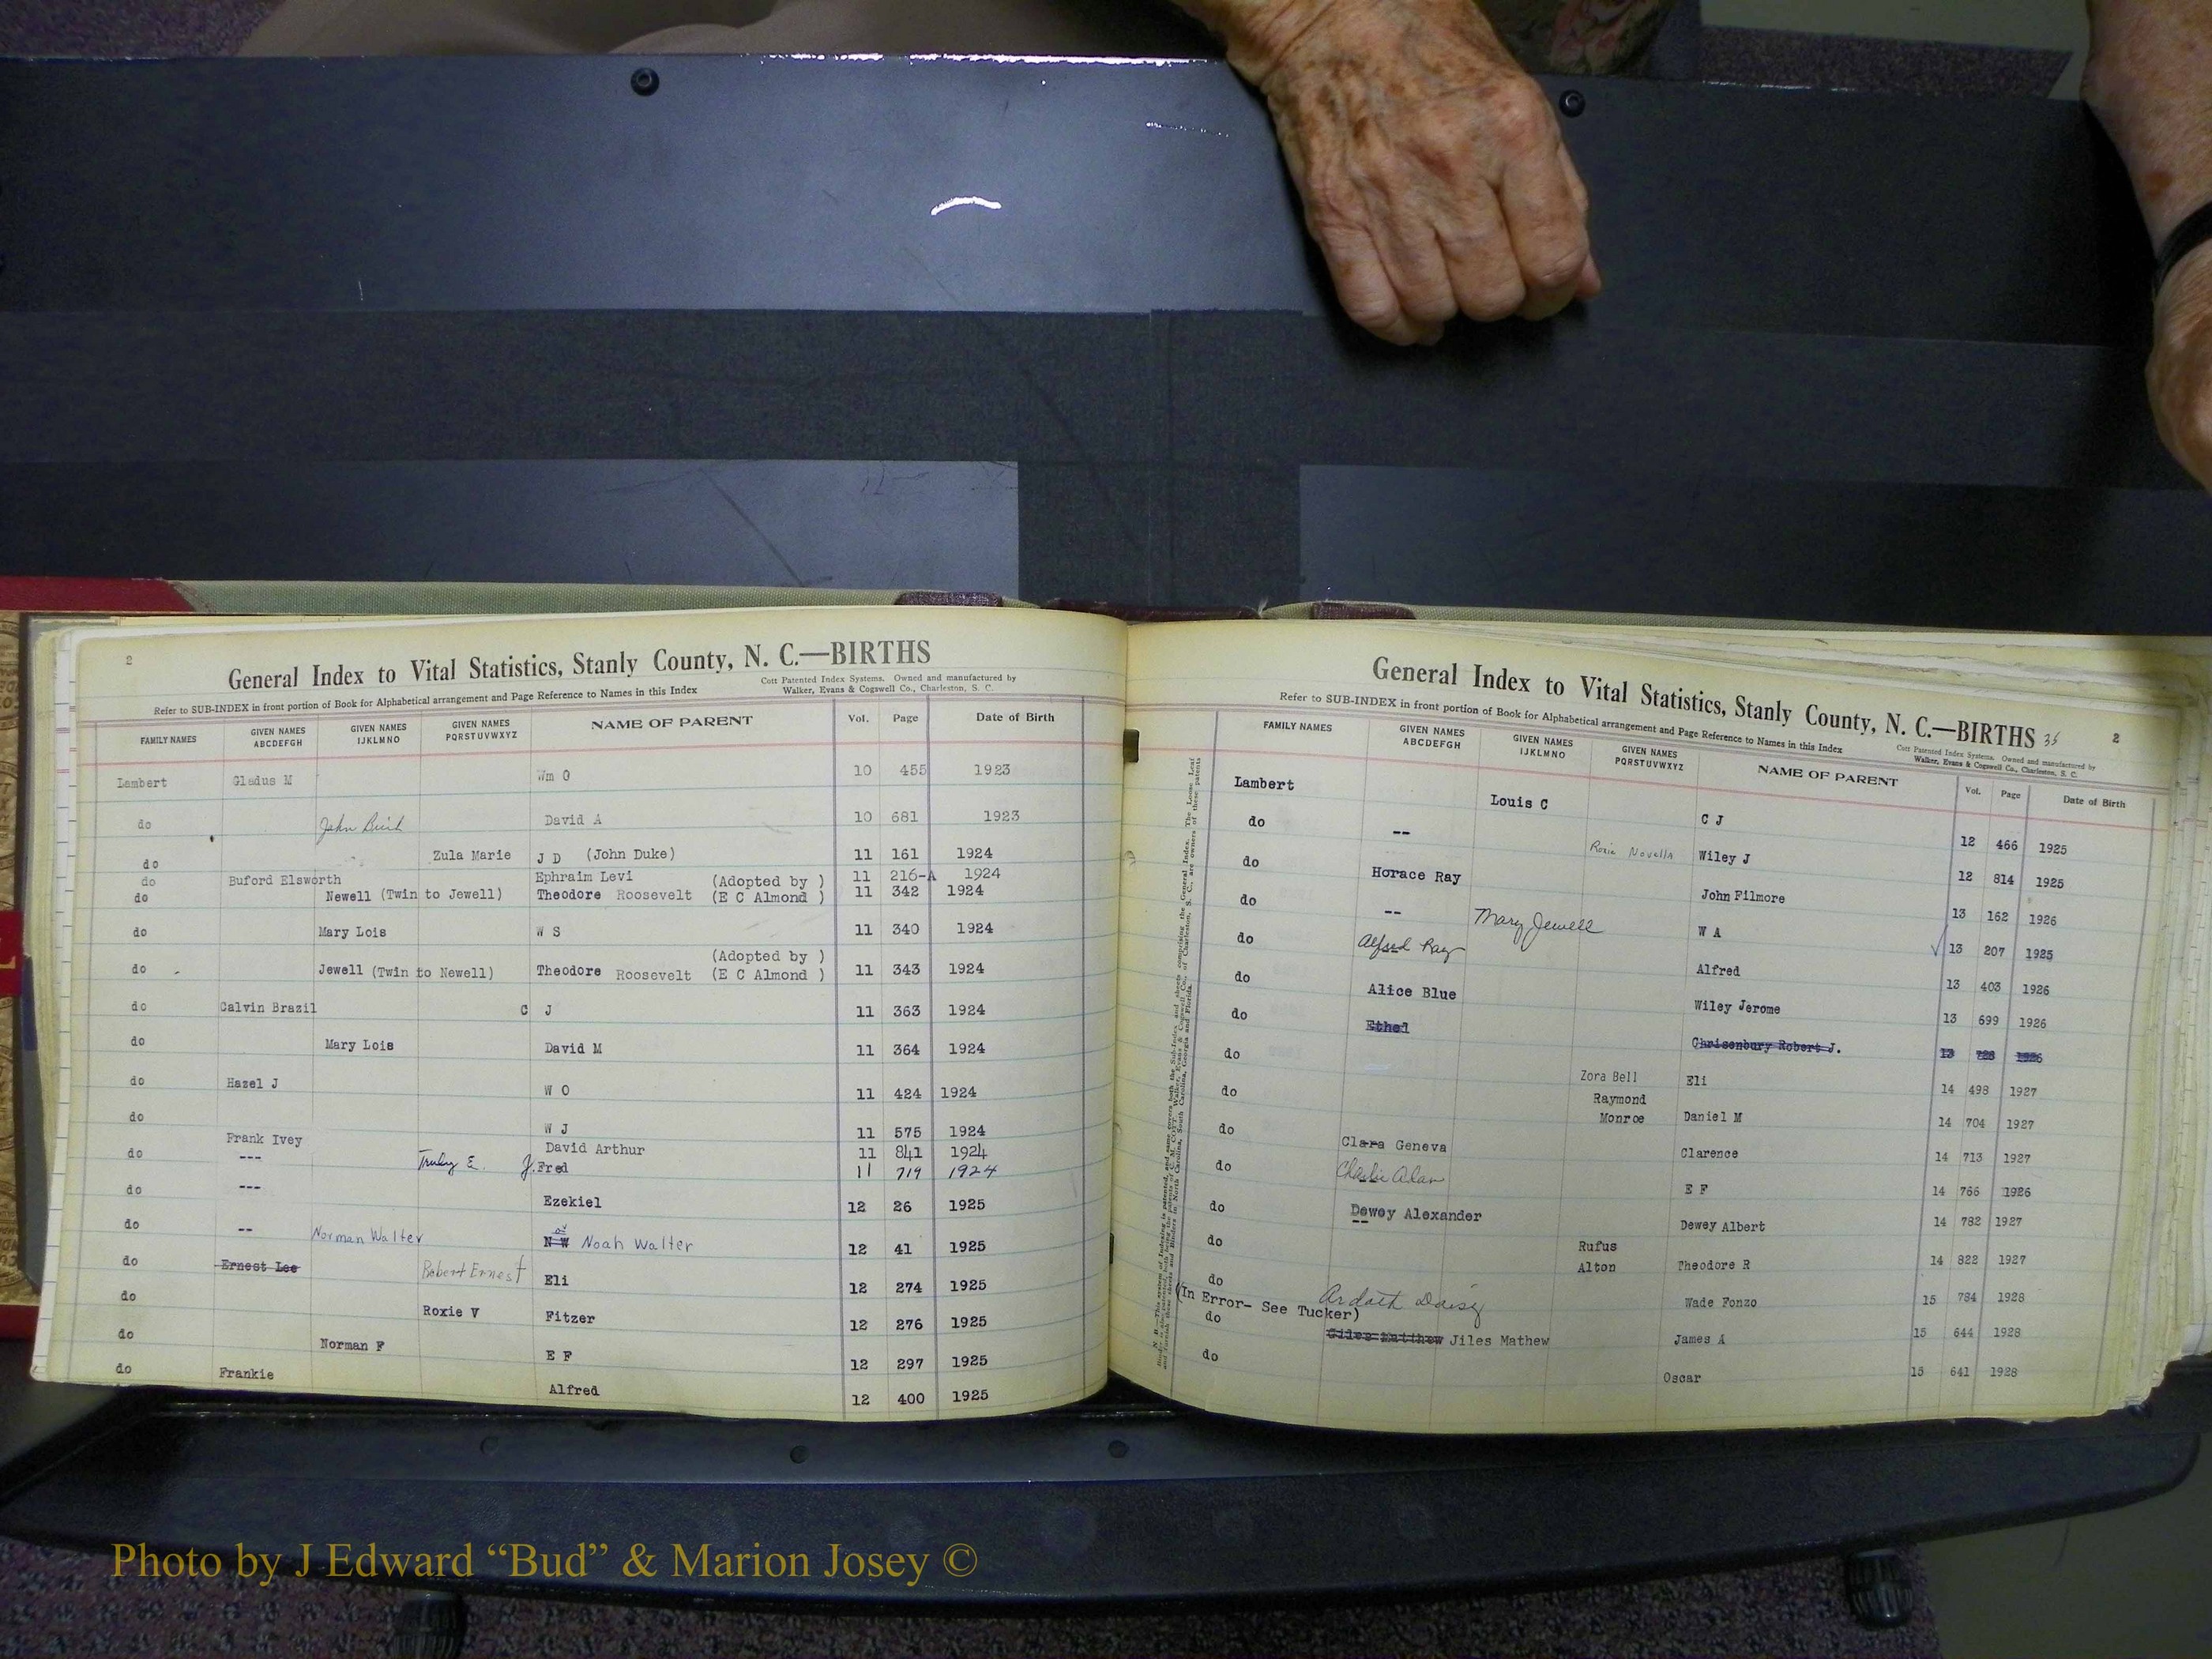 2
General Index to Vital Statistics, Stanly County, N. C.—BIRTHS
Refer to SUB-INDEX in front portion of Book for Alphabetical arrangement and Page Reference to Names in this Index
Cott Patented Index Systems. Owned and manufactured by
Walker, Evans & Cogswell Co., Charleston, S. C.
FAMILY NAMES GIVEN NAMES ABCDEFGH GIVEN NAMES IJKLMNO GIVEN NAMES PQRSTUVWXYZ NAME OF PARENT Vol. Page Date of Birth
Lambert Gladus M Wm O 10 455 1923
do John David A 10 681 1923
do Zula Marie J D (John Duke) 11 161 1924
do Buford Elsworth Ephraim Levi 11 216-A 1924
do Newell (Twin to Jewell) Theodore Roosevelt (Adopted by ) (E C Almond ) 11 342 1924
do Mary Lois W S 11 340 1924
do Jewell (Twin to Newell) Theodore Roosevelt (Adopted by ) (E C Almond ) 11 343 1924
do Calvin Brazil C J 11 363 1924
do Mary Lois David M 11 364 1924
do Hazel J W O 11 424 1924
do W J 11 575 1924
Frank Ivey David Arthur 11 841 1924
do --- Truby E. J. Fred 11 719 1924
do --- Ezekiel 12 26 1925
do -- Norman Walter N W Noah Walter 12 41 1925
do Ernest Lee Robert Ernest Eli 12 274 1925
do Roxie V Fitzer 12 276 1925
do Norman F E F 12 297 1925
do Frankie Alfred 12 400 1925
General Index to Vital Statistics, Stanly County, N. C.—BIRTHS 35 2
Refer to SUB-INDEX in front portion of Book for Alphabetical arrangement and Page Reference to Names in this Index
Cott Patented Index Systems. Owned and manufactured by
Walker, Evans & Cogswell Co., Charleston, S. C.
FAMILY NAMES GIVEN NAMES ABCDEFGH GIVEN NAMES IJKLMNO GIVEN NAMES PQRSTUVWXYZ NAME OF PARENT Vol. Page Date of Birth
Lambert Louis C C J 12 466 1925
do -- Roxie Novella Wiley J 12 814 1925
do Horace Ray John Filmore 13 162 1926
do -- Mary Jewell W A 13 207 1925
do Alfred Ray Alfred 13 403 1926
do Alice Blue Wiley Jerome 13 699 1926
do Ethel Chrisenbury Robert J. 13 728 1926
do Zora Bell Eli 14 498 1927
do Raymond Monroe Daniel M 14 704 1927
do Clara Geneva Clarence 14 713 1927
do Charlie Alan E F 14 766 1926
do Dewey Alexander Dewey Albert 14 782 1927
do Rufus Alton Theodore R 14 822 1927
do Ardath Daisy Wade Fonzo 15 784 1928
(In Error- See Tucker)
do Giles Matthew Jiles Mathew James A 15 644 1928
do Oscar 15 641 1928
Photo by J Edward “Bud” & Marion Josey ©